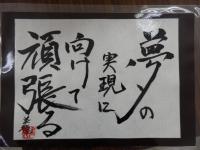 夢の
実現に
向けて
頑張る